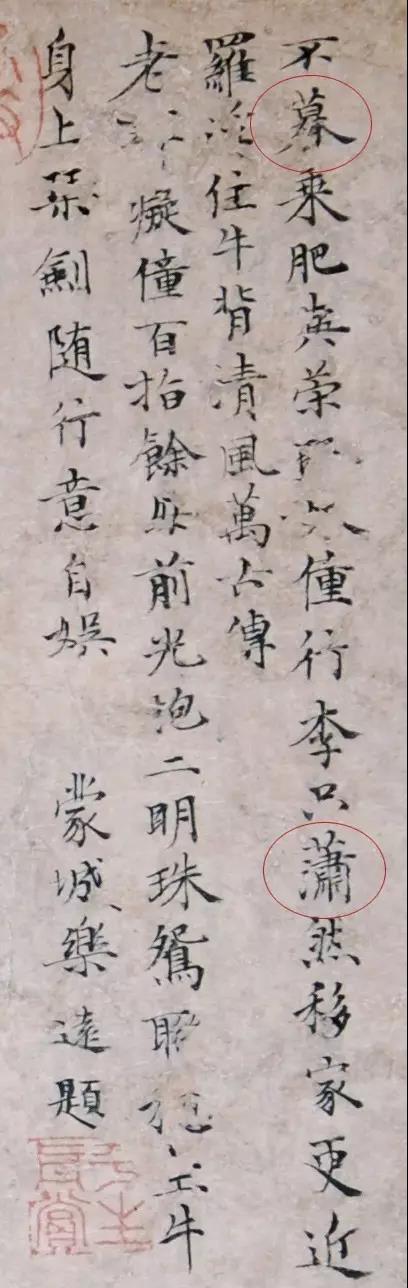 不慕乘肥與榮僮行李只蕭然移家更近
羅浮住牛背清風萬古傳
老癡僮百指餘前光泡二明珠鴛穩坐牛
身上琹劍随行意自娛 蒙城樂逺題